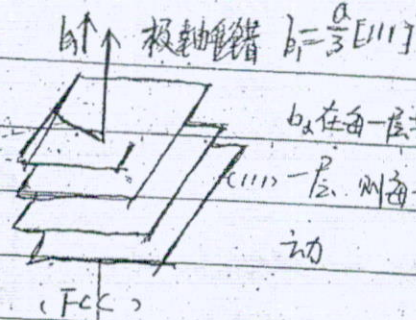 b₁ 极轴位错 b₁=a/3[111]
b₂在每一层
(111)一层、则每
动
(FCC)